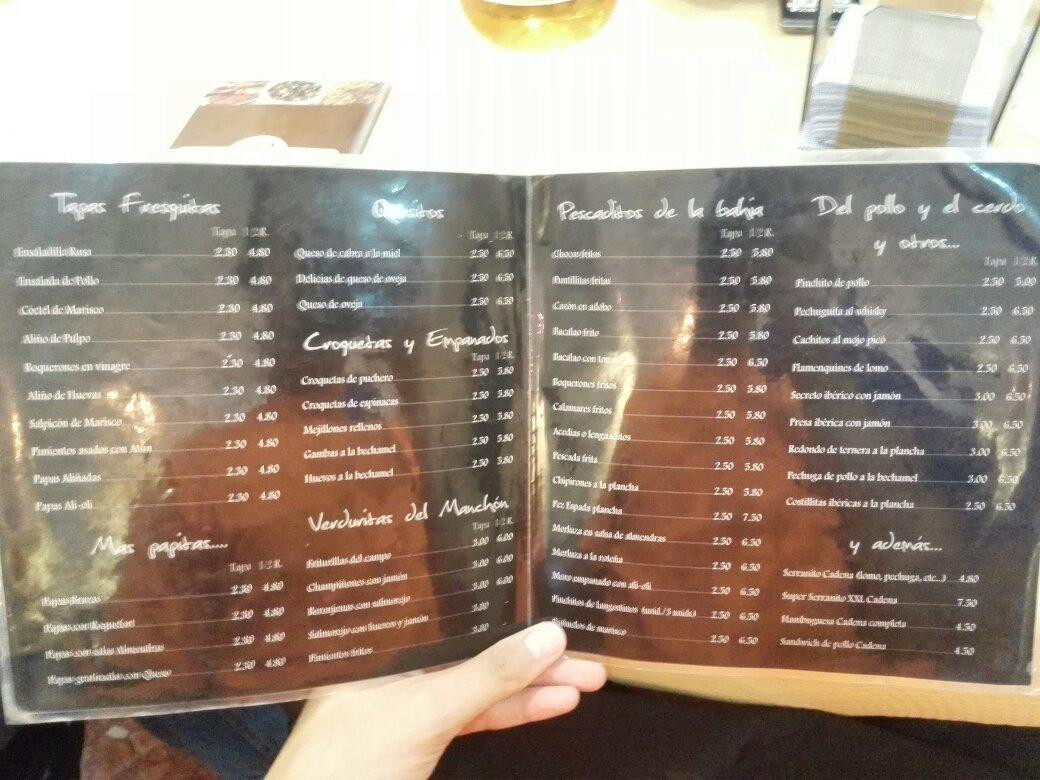 Tapas Fresquitas
Tapa 1/2 R.
Ensaladilla Rusa 2.30 4.80
Ensalada de Pollo 2.30 4.80
Cóctel de Marisco 2.30 4.80
Aliño de Pulpo 2.30 4.80
Boquerones en vinagre 2.30 4.80
Aliño de Huevas 2.30 4.80
Salpicón de Marisco 2.30 4.80
Pimientos asados con Atún 2.30 4.80
Papas Aliñadas 2.30 4.80
Papas Ali-oli 2.30 4.80
Mas papitas....
Tapa 1/2 R.
Papas Bravas 2.30 4.80
Papas con Roquefort 2.30 4.80
Papas con salsa Almendras 2.30 4.80
Papas gratinadas con Queso 2.30 4.80
Quesitos
Tapa 1/2 R.
Queso de cabra a la miel 2.50 6.50
Delicias de queso de oveja 2.50 6.50
Queso de oveja 2.50 6.50
Croquetas y Empanados
Tapa 1/2 R.
Croquetas de puchero 2.50 5.80
Croquetas de espinacas 2.50 5.80
Mejillones rellenos 2.50 5.80
Gambas a la bechamel 2.50 5.80
Huevos a la bechamel 2.50 5.80
Verduritas del Manchón
Tapa 1/2 R.
Friturillas del campo 3.00 6.00
Champiñones con jamón 3.00 6.00
Berenjenas con salmorejo 3.00 6.00
Salmorejo con huevos y jamón 3.00
Pimientos fritos 3.00
Pescaditos de la bahia
Tapa 1/2 R.
Chocos fritos 2.50 5.80
Puntillitas fritas 2.50 5.80
Cazón en adobo 2.50 5.80
Bacalao frito 2.50 5.80
Bacalao con tomate 2.50 6.50
Boquerones fritos 2.50 5.80
Calamares fritos 2.50 5.80
Acedias o lenguaditos 2.50 5.80
Pescada frita 2.50 5.80
Chipirones a la plancha 2.50 5.80
Pez Espada plancha 2.50 7.50
Merluza en salsa de almendras 2.50 6.50
Merluza a la roteña 2.50 6.50
Mero empanado con ali-oli 2.50 6.50
Pinchitos de langostinos (unid./5 unids) 2.50 6.50
Buñuelos de marisco 2.50 6.50
Del pollo y el cerdo
y otros...
Tapa 1/2 R.
Pinchito de pollo 2.50 5.00
Pechuguita al whisky 2.50 6.50
Cachitos al mojo picó 2.50 6.50
Flamenquines de lomo 2.50 6.50
Secreto ibérico con jamón 3.00 6.50
Presa ibérica con jamón 3.00 6.50
Redondo de ternera a la plancha 3.00 6.50
Pechuga de pollo a la bechamel 3.00 6.50
Costillitas ibéricas a la plancha 2.50 6.50
y además...
Serranito Cadena (lomo, pechuga, etc...) 4.80
Super Serranito XXL Cadena 7.50
Hamburguesa Cadena completa 4.50
Sandwich de pollo Cadena 4.50